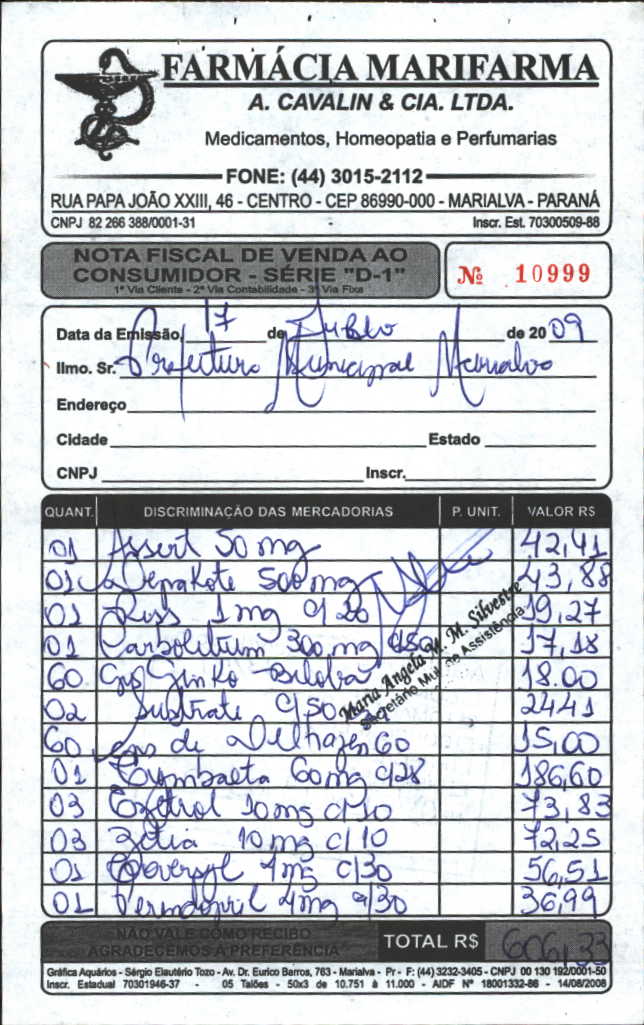 FARMÁCIA MARIFARMA
A. CAVALIN & CIA. LTDA.
Medicamentos, Homeopatia e Perfumarias
FONE: (44) 3015-2112
RUA PAPA JOÃO XXIII, 46 - CENTRO - CEP 86990-000 - MARIALVA - PARANÁ
CNPJ 82 266 388/0001-31 Inscr. Est. 70300509-88
NOTA FISCAL DE VENDA AO
CONSUMIDOR - SÉRIE "D-1"
1ª Via Cliente - 2ª Via Contabilidade - 3ª Via Fixa
Nº 10999
Data da Emissão, 17 de Julho de 2009
Ilmo. Sr. Prefeitura Municipal Marialva
Endereço
Cidade Estado
CNPJ Inscr.
QUANT. DISCRIMINAÇÃO DAS MERCADORIAS P. UNIT. VALOR R$
01 Assert 50 mg 42,41
01 Depakote 500 mg 43,88
01 Riss 1 mg c/20 19,27
01 Carbolitium 300 mg 17,18
60 Ginko Biloba 18.00
02 Substrate c/50 24,41
60 de 60 15,00
01 Cymbalta 60 mg c/28 186,60
03 Ezetrol 10 mg c/10 73,83
03 Zetia 10 mg c/10 72,25
01 Coversyl 4 mg c/30 56,51
01 Perindopril 4 mg c/30 36,99
Maria Angela M. M. Silvestre
Secretário Mun. de Assistência
NÃO VALE COMO RECIBO
AGRADECEMOS A PREFERÊNCIA
TOTAL R$ 606,33
Gráfica Aquários - Sérgio Elautério Tozo - Av. Dr. Eurico Barros, 763 - Marialva - Pr - F: (44) 3232-3405 - CNPJ 00 130 192/0001-50
Inscr. Estadual 70301946-37 - 05 Talões - 50x3 de 10.751 à 11.000 - AIDF Nº 18001332-86 - 14/08/2008